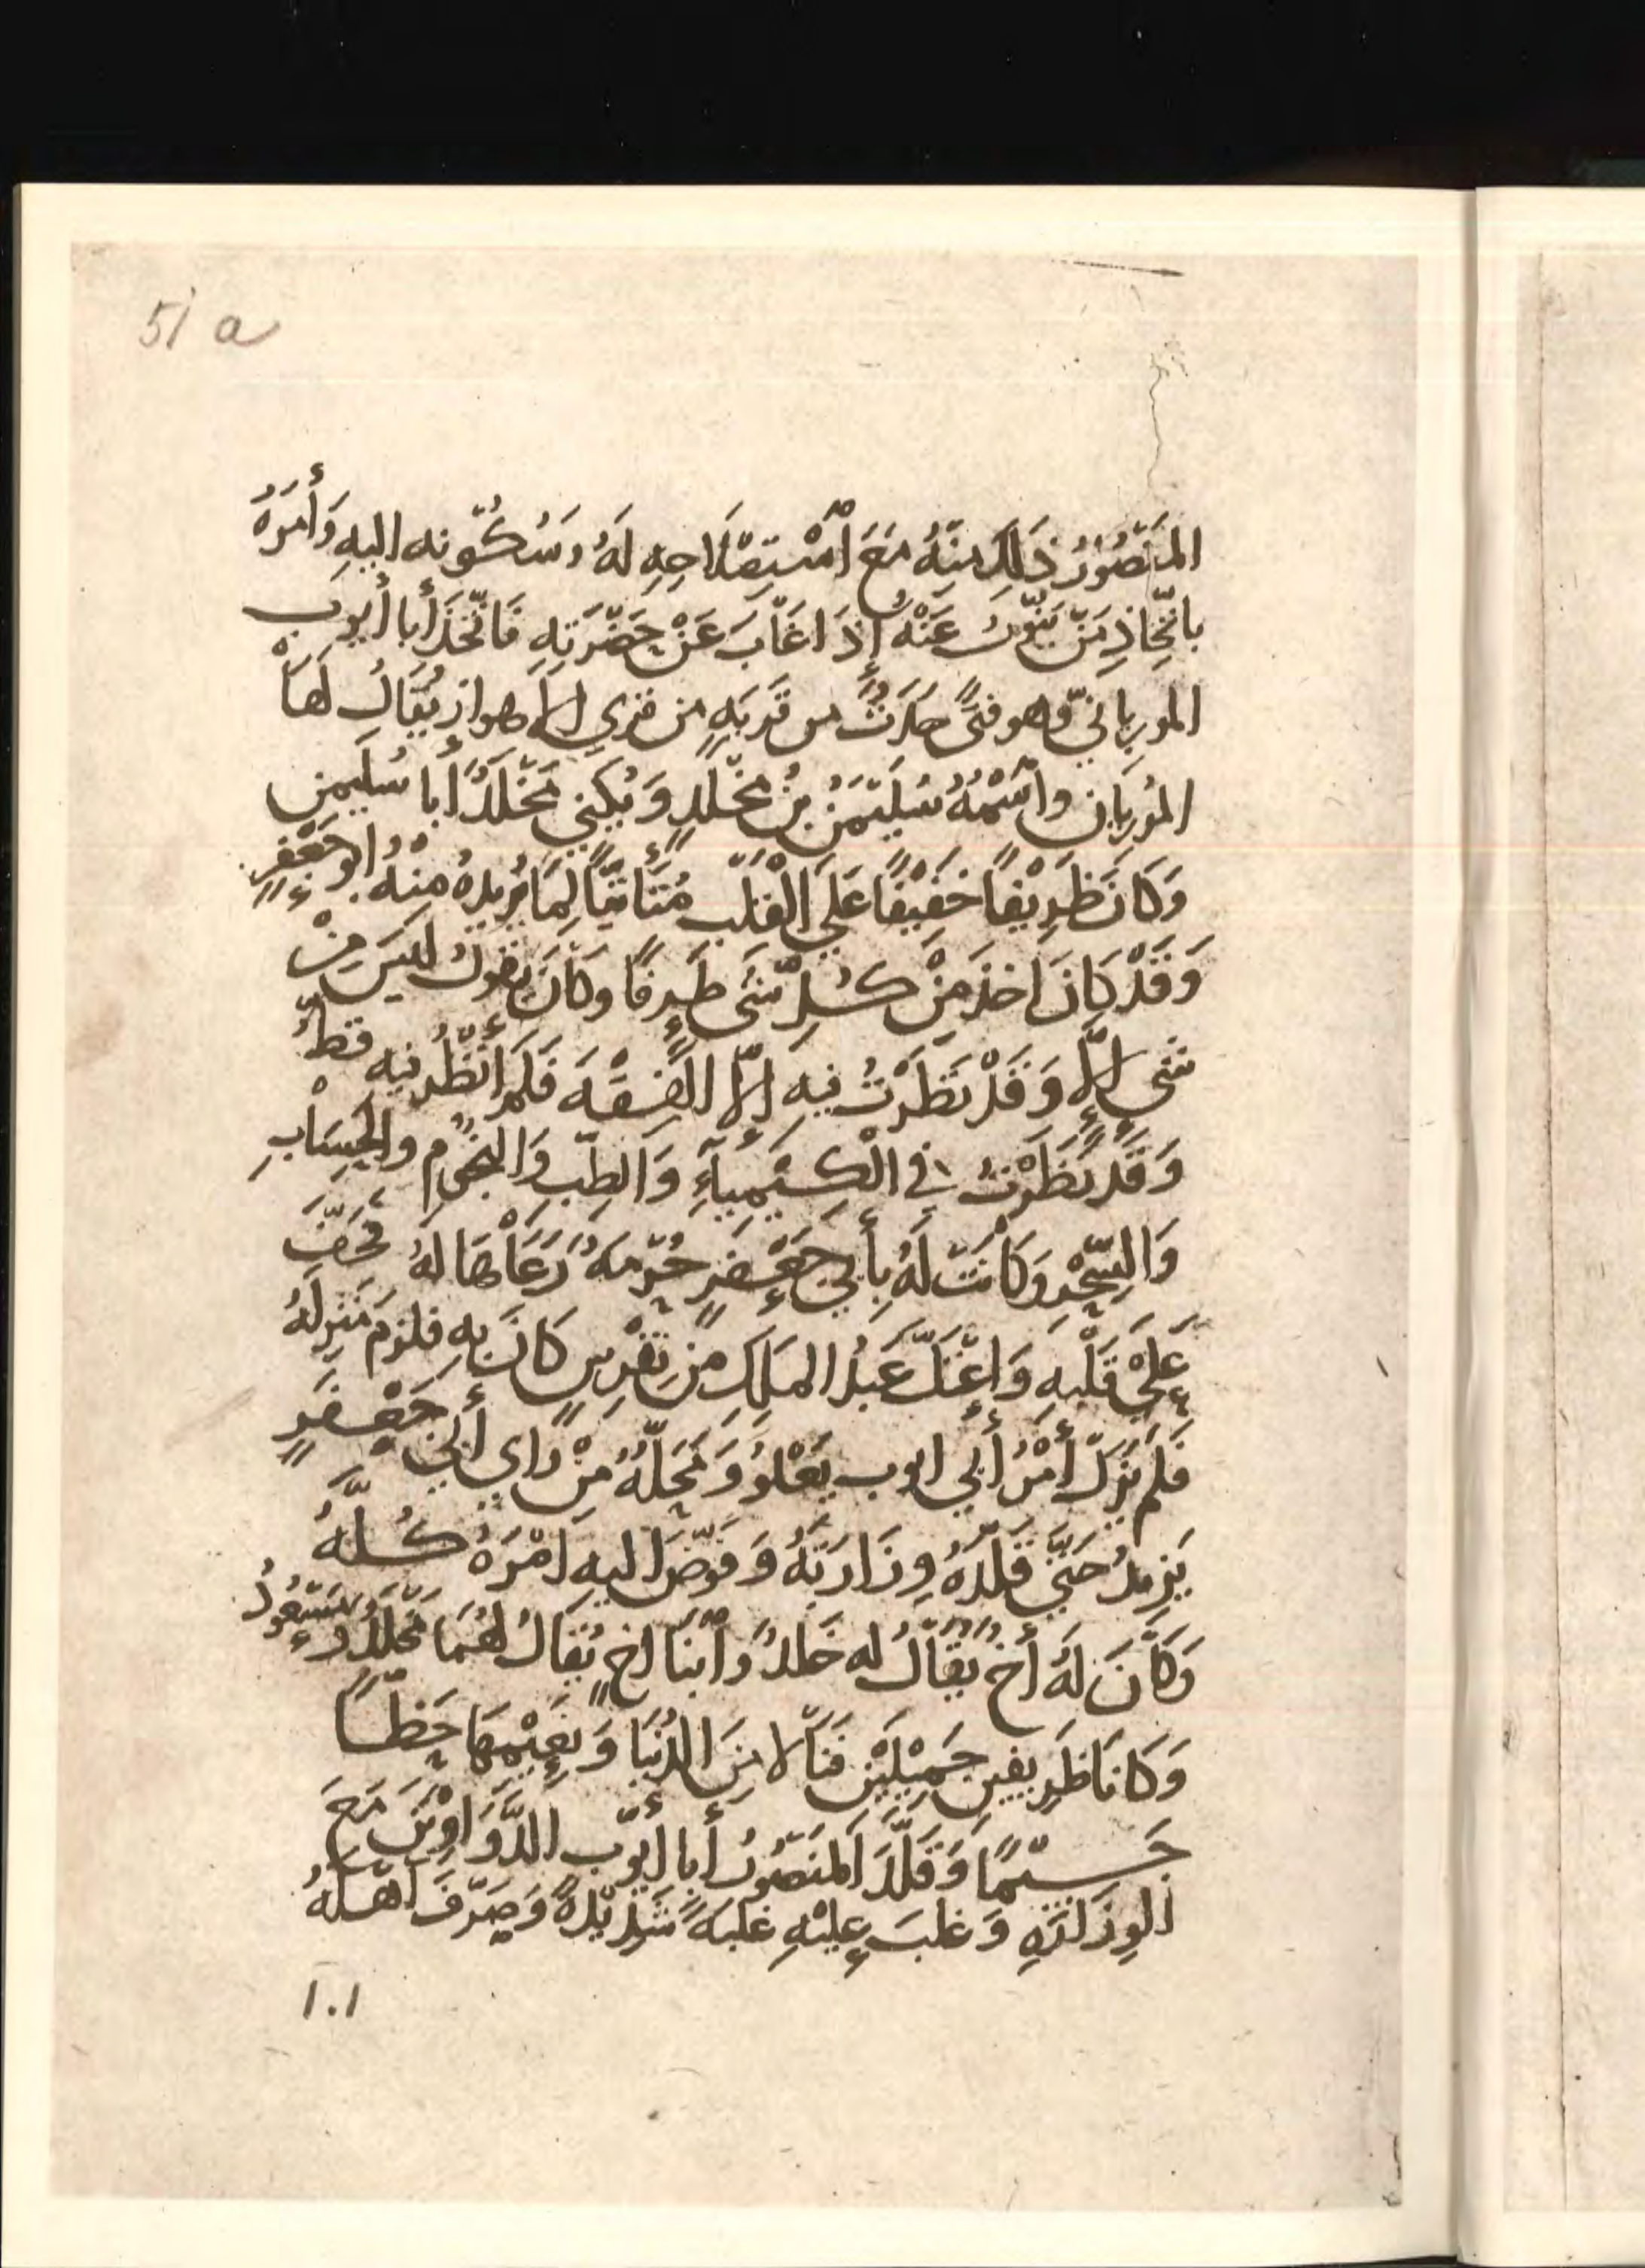 51 a
المَنْصُوْرُ ذَلِكَ مِنْهُ مَعَ اسْتِصْلَاحِهِ لَهُ وَسُكُوْنه اليهِ وَأَمَرَهُ
باتّخاذِ مَنْ يَنُوْبُ عَنْهُ إِذَا غَابَ عَنْ حَضْرَتِهِ فَاتّخَذَ أَبا أَيوب
المورياني وهو فتًى حَدَثٌ من قَريَةٍ من قري الأهواز يُقَالُ لَهَا
المُورِيان واسْمُهُ سُلَيْمَنُ بنُ مَخْلَدٍ وَيُكنِي مَخْلَدٌ أَبا سُلَيمن
وَكَانَ ظَرِيْفاً خَفِيْفًا عَلَي الْقَلْبِ مُتَأَتِيًا لِمَا يُرِيدهُ مِنْهُ ابو جَعْفَرٍ
وَقَدْ كَانَ اخذَ مِنْ كُلِ شَىءٍ طَرفًا وكَانَ يقولُ ليسَ مِنْ
شىءٍ إلَّا وَقَدْ نَظَرْتُ فيهِ إلَّا الفِقْهَ فَلَمْ أَنْظُر فيهِ قطُ
وَقَدْ نَظَرْتُ في الْكِيْمِيَآءِ وَالطِبِّ وَالنجُوم والحِسَابِ
وَالسِّحْرِ وَكَانَتْ لَهُ بِأَبي جَعْفَرٍ حُرْمَةٌ رَعَاهَا لهُ فَخَفَّ
عَلَي قَلْبِهِ وَاعْتَلَّ عَبْدُ المَلِكِ مِن نِقْرِسٍ كَانَ بِهِ فلزمَ مَنزِلَهُ
فَلَم يَزَلْ أَمْرُ أَبي ايوب يَعْلُو وَمَحَلّهُ مِنْ رَاي أَبي جَعْفَرٍ
يَزِيدُ حَتَّي قَلّدَهُ وِزَارَتَهُ وَفَوّضَ اليهِ امْرَهُ كُلَّهُ
وَكَانَ لَهُ أَخٌ يُقَالُ له خَلدٌ وَابْنَا اخٍ يُقَالُ لهُمَا مَخْلَدٌ ومَسْعُودٌ
وَكَانَا ظَرِيفينِ جَمِيْلَيْنِ فَنَالا مِنَ الدُّنيَا وَنَعِيْمِهَا حَظًّا
جَسيْمًا وَقَلَّدَ المَنصُورُ أَبا أَيوب الدَّوَاوِيْنَ مَعَ
الوِزَارَةِ وَغلبَ عليْهِ غلبَةً شَدِيْدَةً وَصَرّفَ أهْلَهُ
١٠١